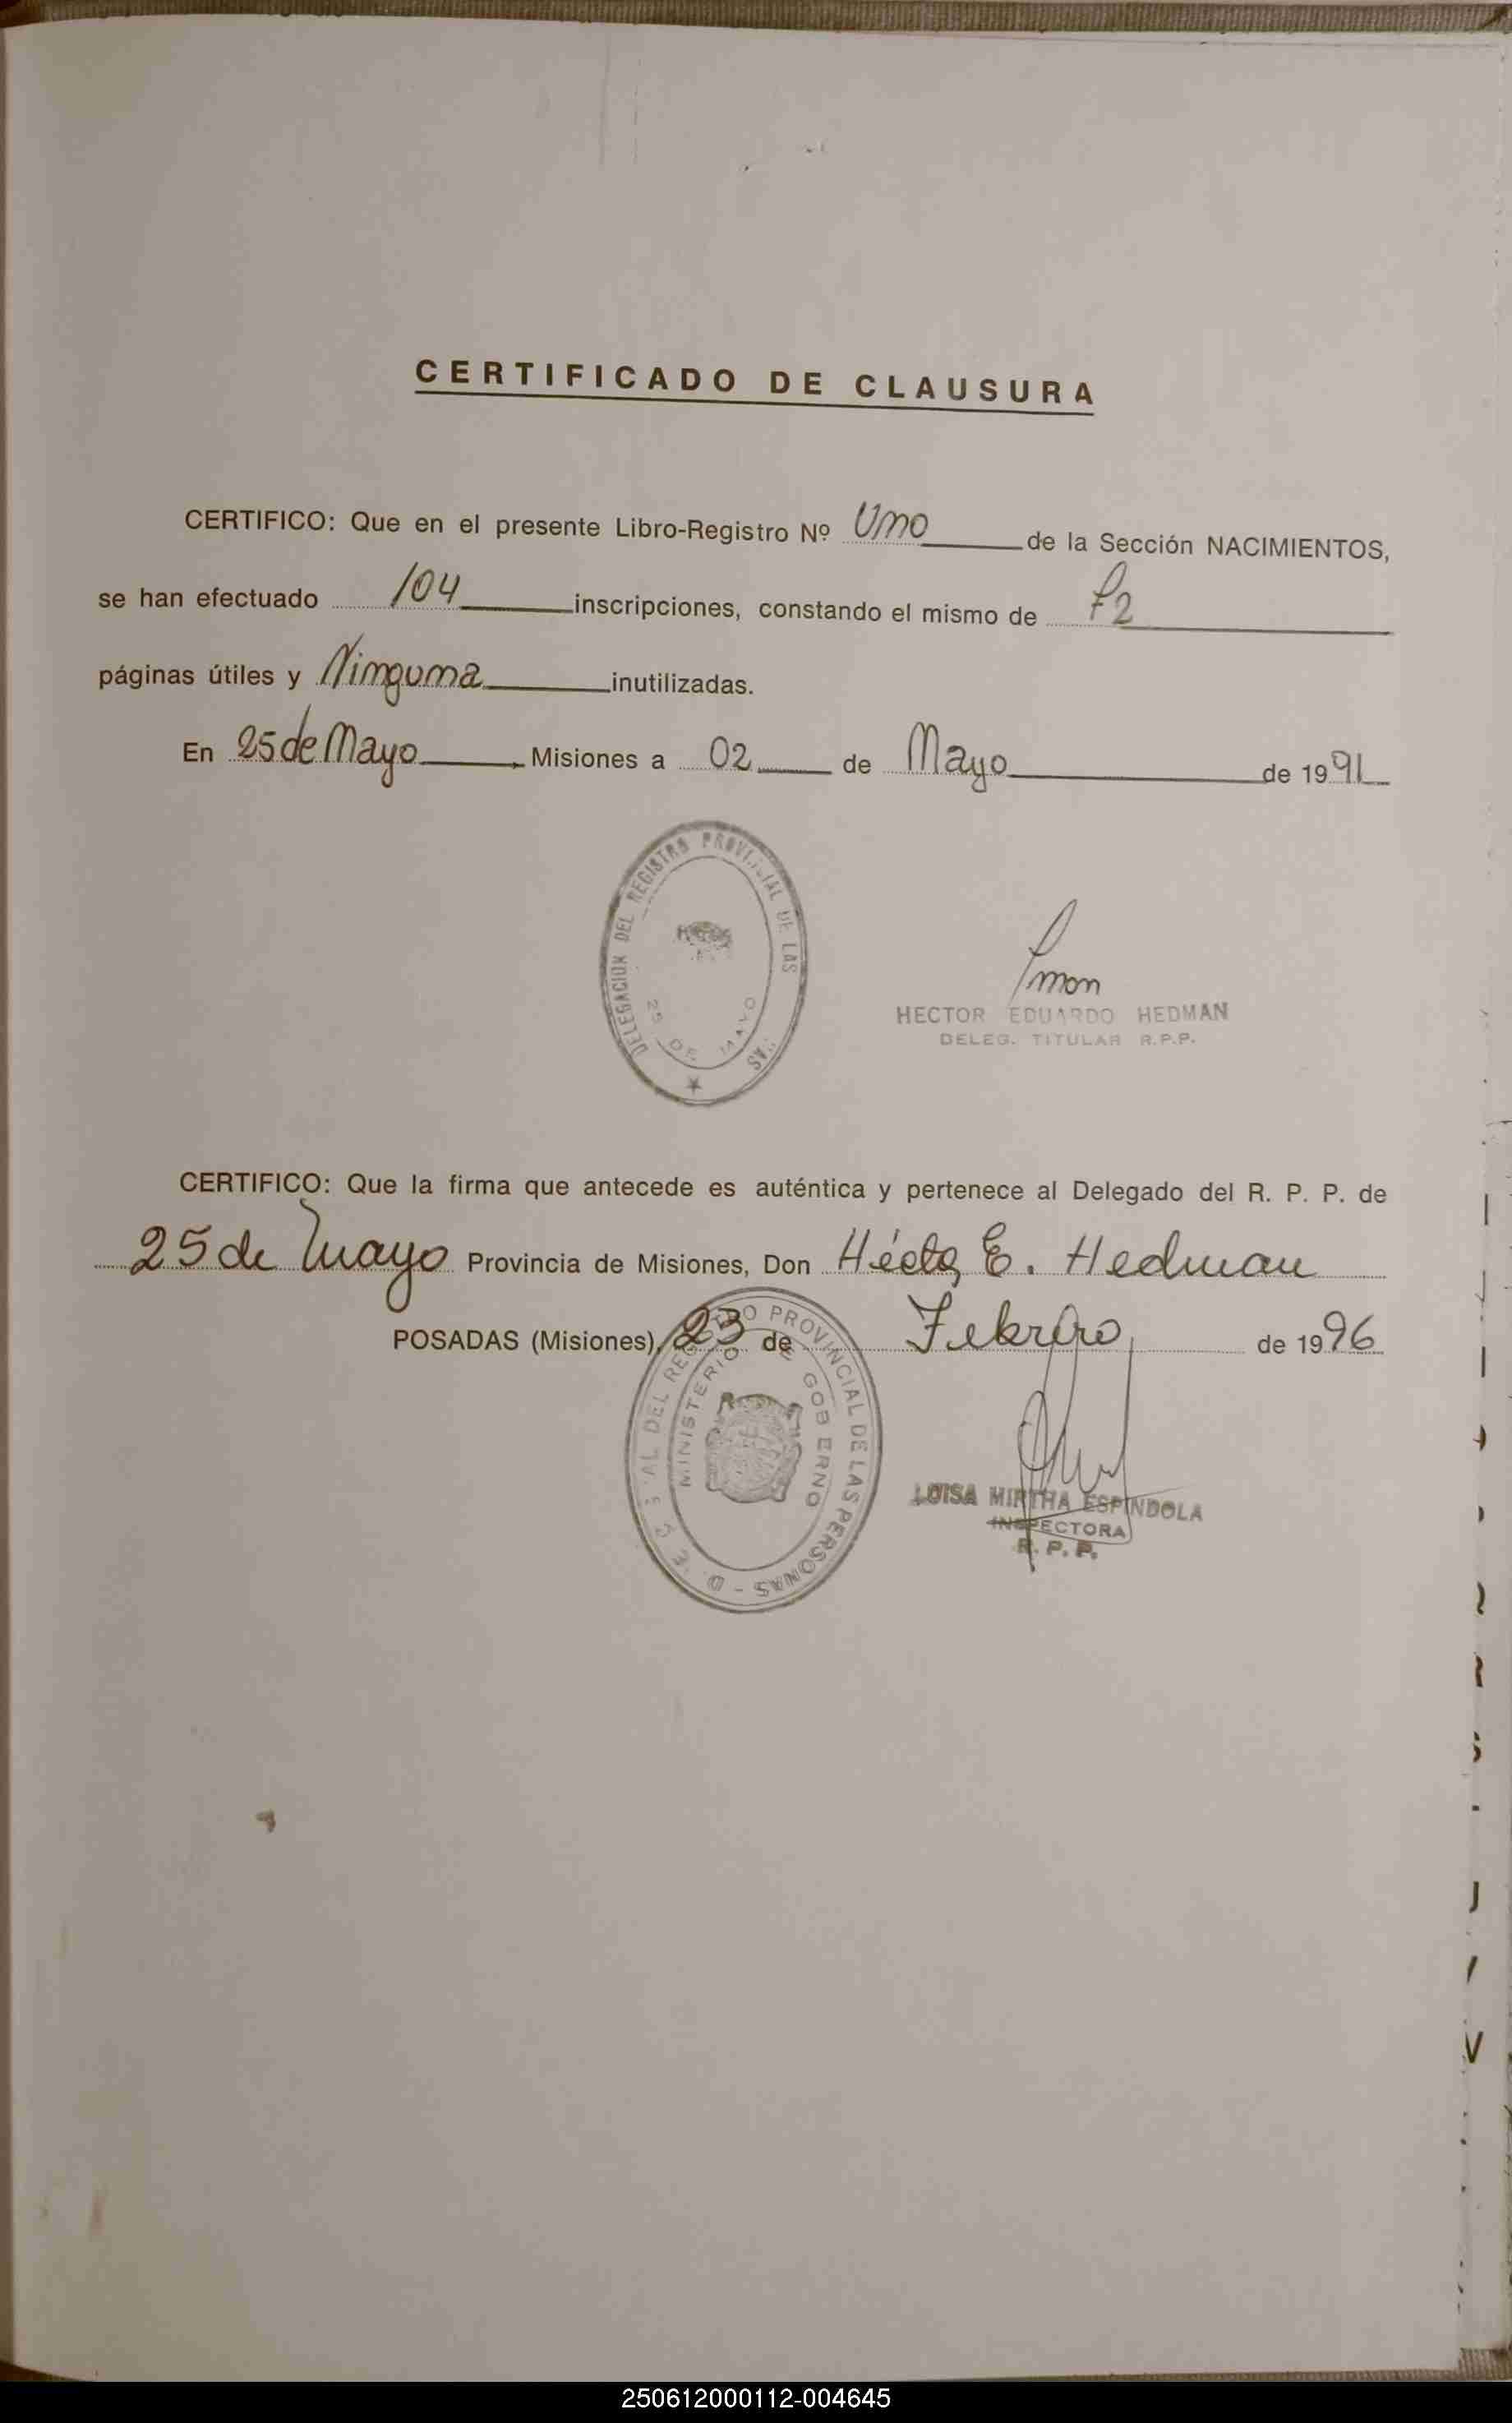 CERTIFICADO DE CLAUSURA
CERTIFICO: Que en el presente Libro-Registro Nº Uno de la Sección NACIMIENTOS,
se han efectuado 104 inscripciones, constando el mismo de
páginas útiles y Ninguna inutilizadas.
En 25 de Mayo Misiones a 02 de Mayo de 1991
DELEGACION DEL REGISTRO PROVINCIAL DE LAS
25 DE MAYO
HECTOR EDUARDO HEDMAN
DELEG. TITULAR R.P.P.
CERTIFICO: Que la firma que antecede es auténtica y pertenece al Delegado del R. P. P. de
25 de Mayo Provincia de Misiones, Don Héctor E. Hedman
POSADAS (Misiones), 23 de Febrero de 1996
PROVINCIAL DE LAS PERSONAS
MINISTERIO DE GOBIERNO
LUISA MIRTHA ESPINDOLA
INSPECTORA
R. P. P.
250612000112-004645